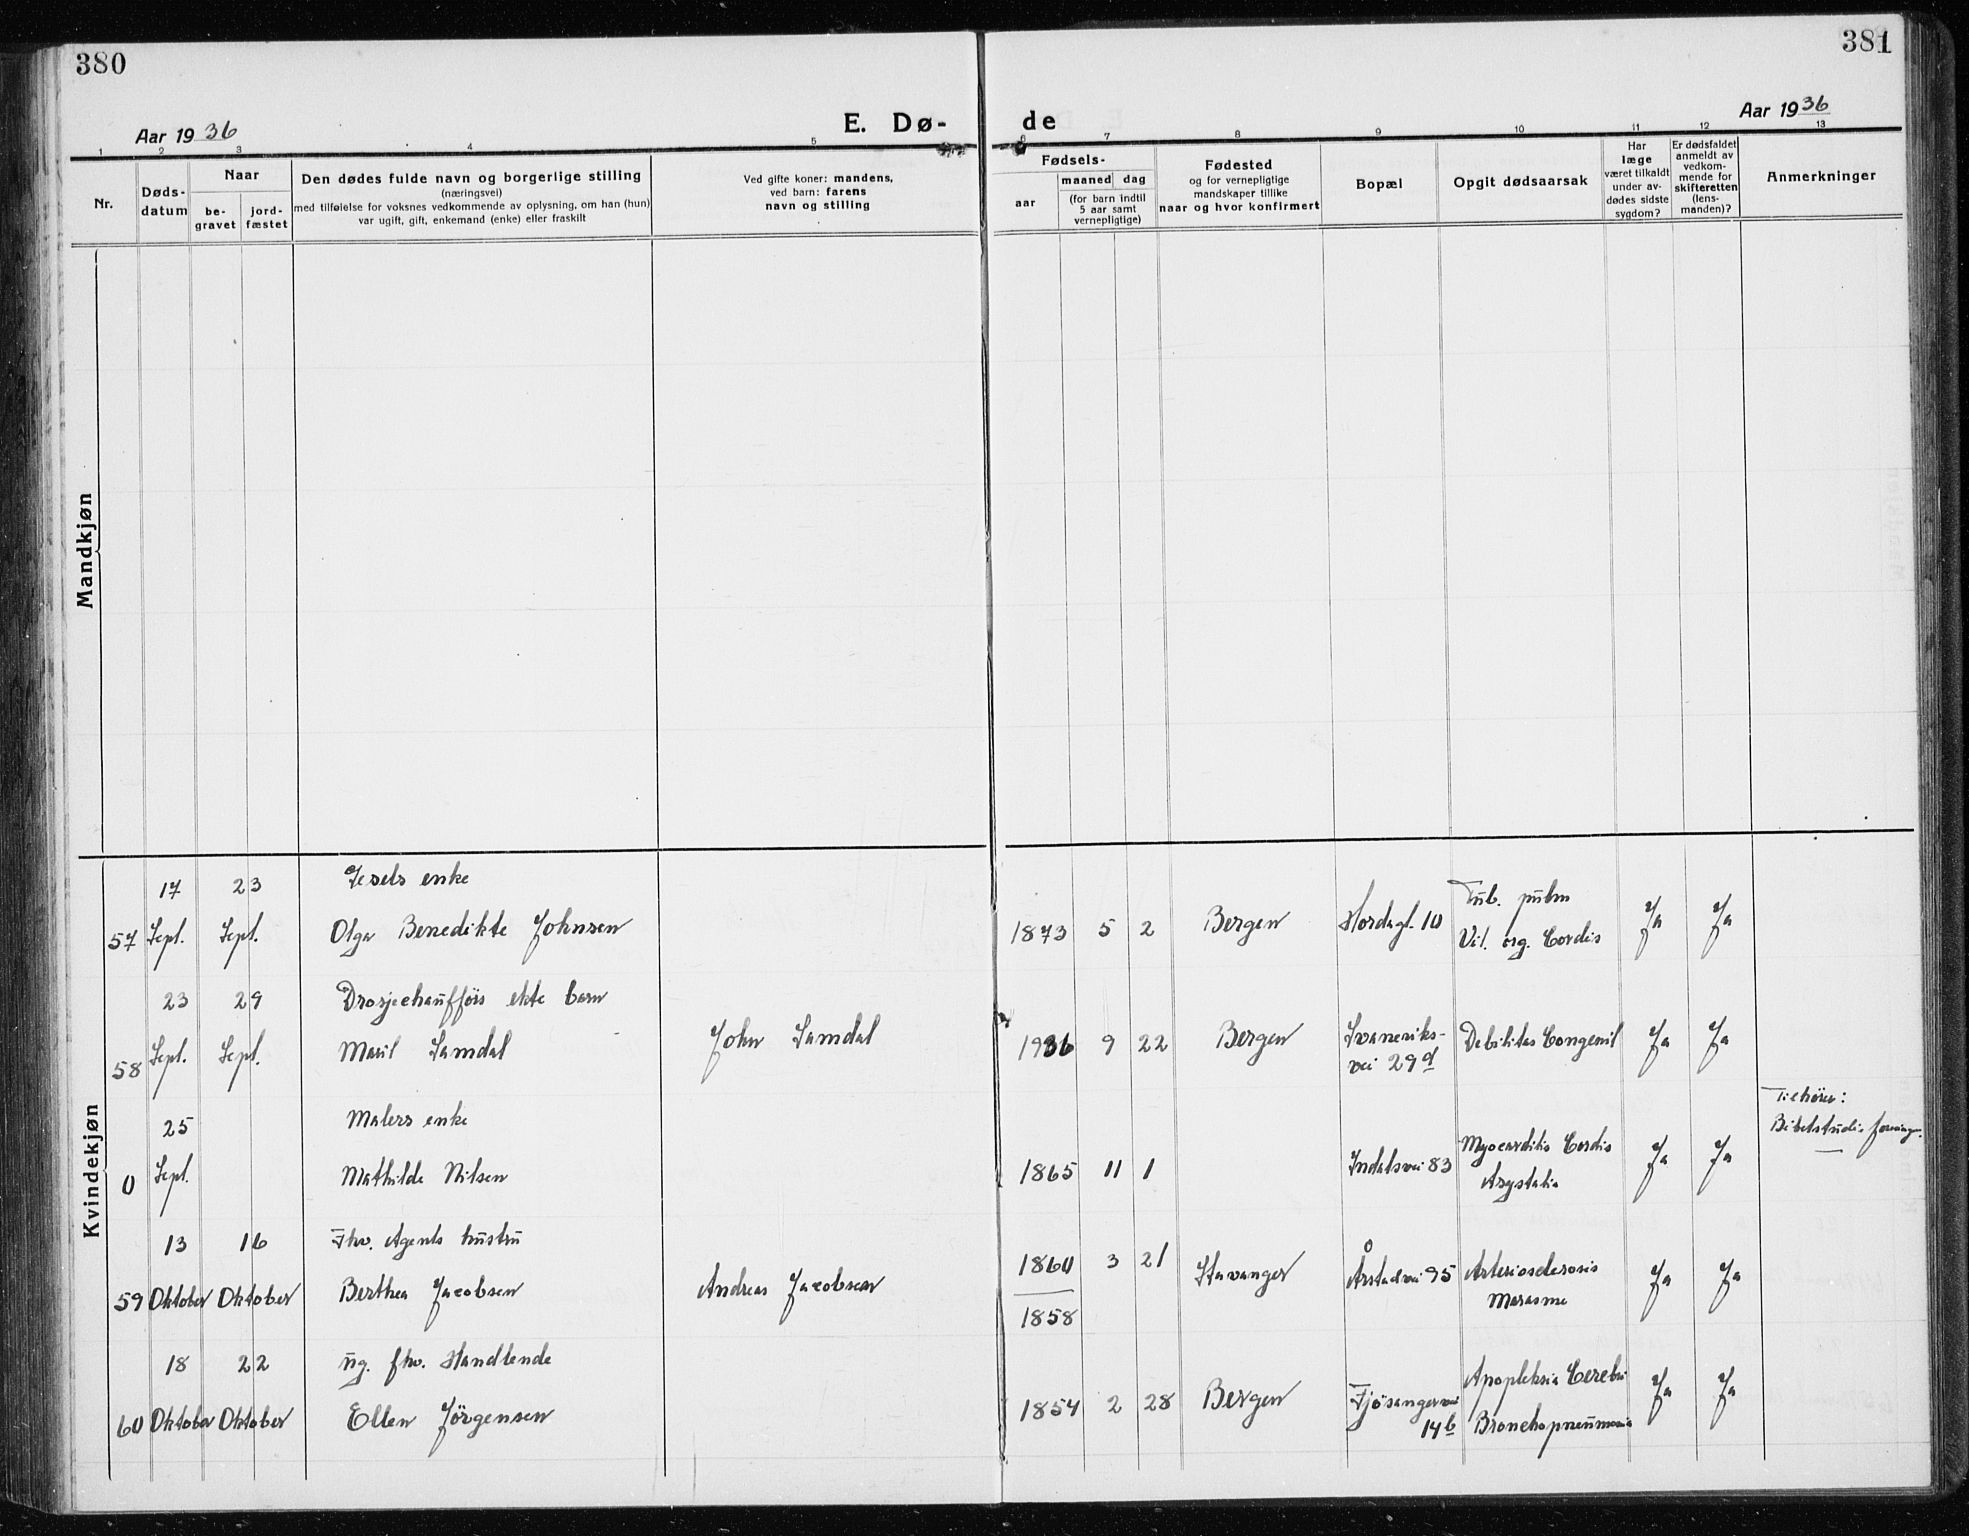 380
381
Aar 1936
E. Dø-
de
Aar 1936
1 2 3 4 5 6 7 8 9 10 11 12 13
Nr.
Døds-
datum
Naar
be-
gravet
jord-
fæstet
Den dødes fulde navn og borgerlige stilling
(næringsvei)
med tilføielse for voksnes vedkommende av oplysning, om han (hun)
var ugift, gift, enkemand (enke) eller fraskilt
Ved gifte koner: mandens,
ved barn: farens
navn og stilling
Fødsels-
aar
maaned dag
(for barn indtil
5 aar samt
vernepligtige)
Fødested
og for vernepligtige
mandskaper tillike
naar og hvor konfirmert
Bopæl
Opgit dødsaarsak
Har
læge
været tilkaldt
under av-
dødes sidste
sygdom?
Er dødsfaldet
anmeldt av
vedkom-
mende for
skifteretten
(lens-
manden)?
Anmerkninger
Mandkjøn
Kvindekjøn
17 23 enke
57 Sept. Sept. Olga Benedikte Johnsen 1873 5 2 Bergen Hordagt. 10 Tub. pulm
Vit. org. Cordis Ja Ja
23 29 Drosjechaufførs ekte barn
58 Sept. Sept. Maril Samdal John Samdal 1936 9 22 Bergen Svaneviks-
vei 29d Debilitas Congenil Ja Ja
25 Malers enke
0 Sept. Mathilde Nilsen 1865 11 1 Indalsvei 83 Myocarditis Cordis
Asystolia Ja Ja
Tilhører:
Bibelstudie
13 16 Fhv. Agents hustru
59 Oktober Oktober Berthea Jacobsen Andreas Jacobsen 1860 3 21 Stavanger Årstadvei 95 Arteriosclerosis
1858 Marasme Ja Ja
18 22 ug. fhv. Handlende
60 Oktober Oktober Ellen Jörgensen 1854 2 28 Bergen Fjøsangervei
14b Apopleksia Cerebri
Bronchopneumonia Ja Ja